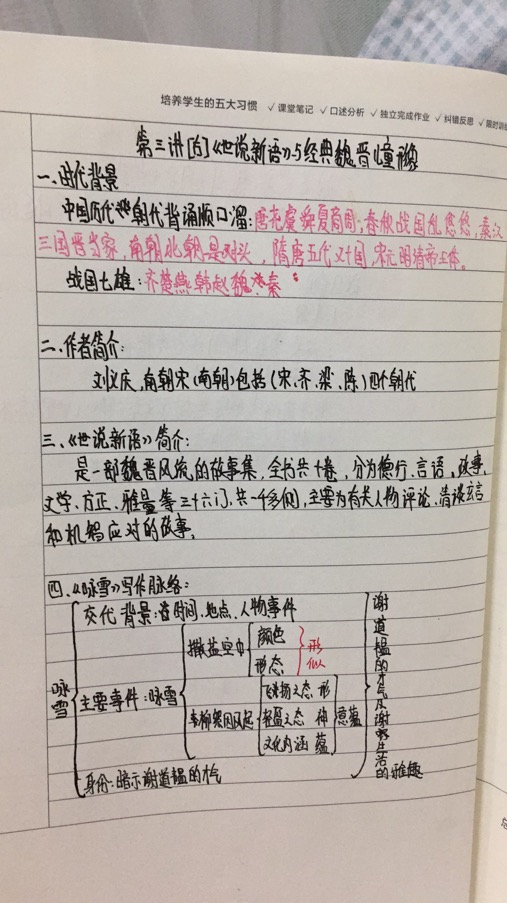 培养学生的五大习惯 ✓课堂笔记 ✓口述分析 ✓独立完成作业 ✓纠错反思 ✓限时训
第三讲[古]《世说新语》与经典魏晋儿童形象
一、时代背景
中国历代朝代背诵顺口溜:唐尧虞舜夏商周,春秋战国乱悠悠,秦汉
三国晋当家,南朝北朝是对头,隋唐五代又十国,宋元明清帝王休。
战国七雄:齐楚燕韩赵魏秦
二、作者简介:
刘义庆,南朝宋(南朝)包括(宋、齐、梁、陈)四个朝代
三、《世说新语》简介:
是一部魏晋风流的故事集,全书共十卷,分为德行、言语、政事、
文学、方正、雅量等三十六门,共一千多则,主要为有关人物评论、清谈玄言
和机智应对的故事。
四、《咏雪》写作脉络:
咏雪
交代背景:时间、地点、人物事件
主要事件:咏雪
撒盐空中
颜色
形态
形似
未若柳絮因风起
飞扬之态 形
轻盈之态 神
文化内涵 蕴
意蕴
身份:暗示谢道韫的才气
谢道韫的才气及谢家生活的雅趣